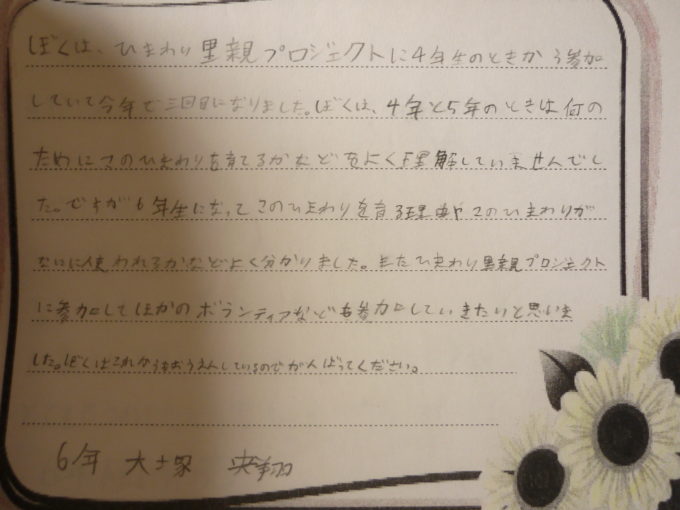 ぼくは、ひまわり里親プロジェクトに4年生のときから参加
していて今年で三回目になりました。ぼくは、4年と5年のときは何の
ためにこのひまわりを育てるかなどをよく理解していませんでし
た。ですが6年生になってこのひまわりを育る理由やこのひまわりが
なにに使われるかなどよく分かりました。またひまわり里親プロジェクト
に参加してほかのボランティアなども参加していきたいと思いま
した。ぼくはこれからもおうえんしているのでがんばってください。
6年 大塚